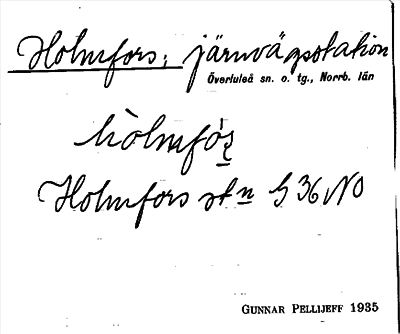 Holmfors, järnvägsstation
Överluleå sn. o. tg., Norrb. län
hòlmfóṣ
Holmfors stn G 36 NO
GUNNAR PELLIJEFF 1935